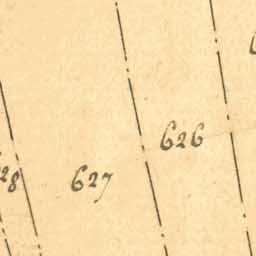 626
627
28